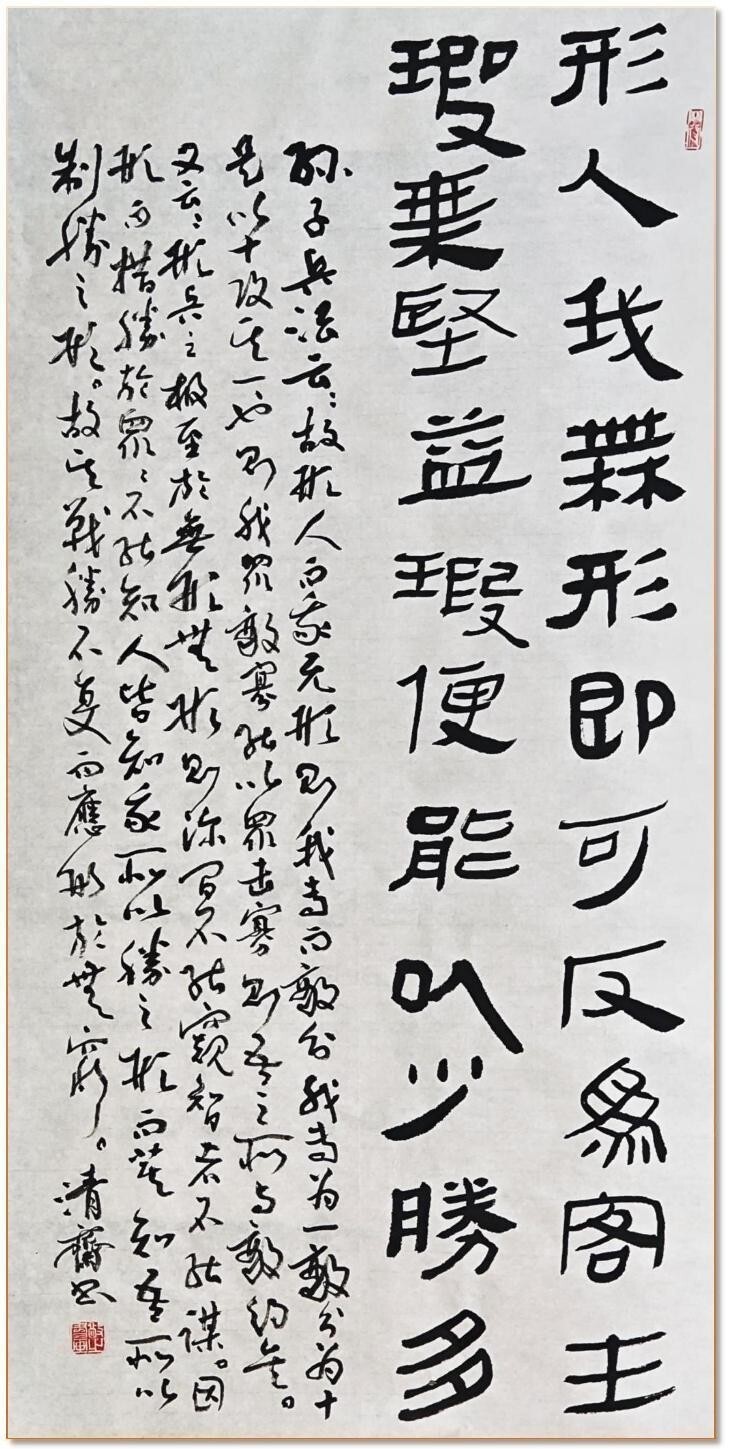 形人我無形即可反為客主
瑕乘堅益瑕便能以少勝多
孫子兵法云：故形人而我无形則我専而敵分我専为一敵分为十
是以十攻其一也則我眾敵寡能以眾击寡則吾之所与敵約矣。
又云：形兵之極至於無形無形則深間不能窺智者不能謀。因
形而措勝於眾眾不能知人皆知我所以勝之形而莫知吾所以
制勝之形。故其戰勝不复而應形於無窮。清齋书